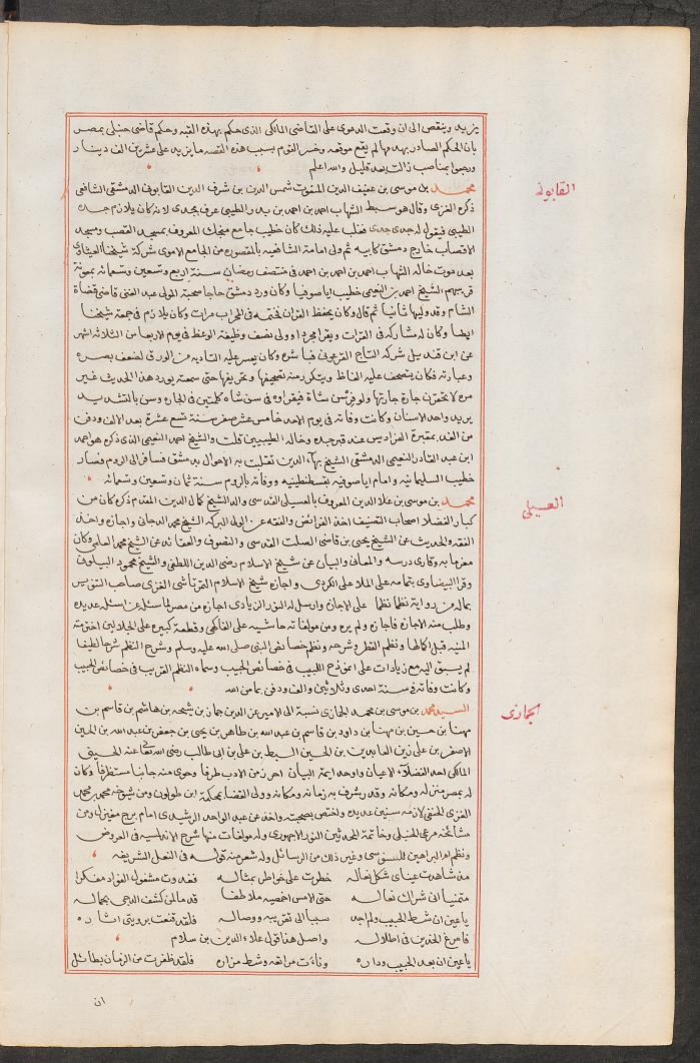 يزيد وينقص الى ان وقعت الدعوى على القاضى المالكى الذى حكم بهذه القبه وحكم قاضى حنبلى بمصر
بان الحكم الصادر بهدمها لم يقع موقعه وخسر القوم بسبب هذه القصه ما يزيد على عشرين الف دينار
ورجوا بمناصب زالت بعد قليل والله اعلم
القابونى
محمد بن موسى بن عفيف الدين المنعوت شمس الدين بن شرف الدين القابونى الدمشقى الشافعى
ذكره الغزى وقال هو سبط الشهاب احمد بن احمد بن بدر الطيبى عرف بجدى لانه كان يلازم جده
الطيبى فيقول له جدى جدى فغلب عليه ذلك كان خطيب جامع منجك المعروف بمسجد القصب ومسجد
الاقصاب خارج دمشق كابيه ثم ولى امامة الشافعيه بالمقصوره من الجامع الاموى شركة شيخنا العيثاوى
بعد موت خاله الشهاب احمد بن احمد بن احمد فى منتصف رمضان سنة اربع وتسعين وتسعمائة بمعونة
قريبهم الشيخ احمد بن النعيمى خطيب اياصوفيا وكان ورد دمشق حاجا صحبة المولى عبد الغنى قاضى قضاة
الشام وقد وليها ثانيا ثم قال وكان يحفظ القران فختمه فى المحراب مرات وكان يلازم فى جمعة شيخنا
ايضا وكان له مشاركه فى القرات ويقرا مجردا وولى نصف وظيفة الوعظ فى يوم الاربعا من الثلاثه اشهر
عن ابن قنديل شركة التاج القرعونى فباشره وكان يعسر عليه التاديه من الورق لضعف بصره
وعبارته فكان يتصحف عليه الفاظ ويتكرر منه تصحيفها وتحريفها حتى سمعته يورد هذا الحديث غير
مره لا تحقرن جارة جارتها ولو فرسن شاة فيقراوه فى سن شاه كلمتين فى الجاره وسن بالتشديد
يريد واحد الاسنان وكانت وفاته فى يوم الاحد خامس عشر صفر سنة تسع عشرة بعد الالف ودفن
من الغد بمقبرة الفراديس عند قبر جده وخاله الطيبيين قلت والشيخ احمد النعيمى الذى ذكره هو احمد
ابن عبد القادر النعيمى الدمشقى الشيخ بهاء الدين تقلبت به الاحوال بدمشق فسافر الى الروم فصار
خطيب السليمانيه وامام اياصوفيه بقسطنطينيه ووفاته بالروم سنة ثمان وتسعين وتسعمائه
العسيلى
محمد بن موسى بن علاء الدين المعروف بالعسيلى القدسى والد الشيخ كمال الدين المقدم ذكره كان من
كبار الفضلا اصحاب التصنيف اخذ الفرائض والفقه عن الولى البركه الشيخ محمد الدجانى واجازه واخذ
الفقه والحديث عن الشيخ يحيى بن قاضى الصلت القدسى والتصوف والعقائد عن الشيخ محمد العلمى وكان
معزما به وقارى درسه والمعانى والبيان عن شيخ الاسلام رضى الدين اللطفى والشيخ محمود البيلونى
وقرا البيضاوى بتمامه على الملا على الكردى واجازه شيخ الاسلام التمرتاشى الغزى صاحب التنوير
بماله من رواية نظما نظما على الاجازه وارسل له النور الزيادى اجازه من مصر لما سئله عن اسئله عديده
وطلب منه الاجازه فاجازه ولم يره ومن مولفاته حاشيه على الفاكهى وقطعة كبيره على الجلالين اخترمته
المنيه قبل اكمالها ونظم القطر وشرحه ونظم خصائص النبى صلى الله عليه وسلم وشرح النظم شرحا لطيفا
لم يسبق اليه مع زيادات على انموذج اللبيب فى خصائص الحبيب وسماه النظم القريب فى خصائص الحبيب
وكانت وفاته فى سنة احدى وثلاثين والف ودفن بماملا الله
الجمازى
السيد محمد بن موسى بن محمد الجمازى نسبة الى الامير عز الدين جماز بن شيحه بن هاشم بن قاسم بن
مهنا بن حسين بن مهنا بن داود بن قاسم بن عبد الله بن طاهر بن يحيى بن جعفر بن عبد الله بن الحسين
الاصغر بن على زين العابدين بن الحسين السبط بن على بن ابى طالب رضى الله تعالى عنه الحسينى
المالكى احد الفضلاء الاعيان واوحد ايمة البيان احرز من الادب طرفا وحوى منه جانبا مستظرفا وكان
له بمصر منزله ومكانه وقد يشرف به زمانه ومكانه وولى القضا بمحكمة ابن طولون ومن شيوخه محمد
الغزى الحنفى لازمه سنين عديده واختص بصحبته واخذ عن عبد الواحد الرشيدى امام برج مغيزل ومن
مشائخه مرعى الحنبلى وخاتمة المحدثين النور الاجهورى وله مولفات منها شرح الاندلسيه فى العروض
ونظم ام البراهين للسنوسى وغير ذلك من الرسائل وله شعر منه قوله فى النعل الشريفه
مذ شاهدت عيناى شكل نعاله خطرت على خواطر بمثاله فغدوت مشغول الفواد مفكرا
متمنيا انى شراك نعاله حتى الامس اخمصيه ملاطفا قدما لمن كشف الدجى بجماله
يا عين ان شط الحبيب ولم اجد سببا الى تقريبه ووصاله فلقد قنعت برويتى اثاره
فامرغ الخدين فى اطلاله واصل هذا قول علاء الدين بن سلام
يا عين ان بعد الحبيب وداره وناءت مرابعه وشط مزاره فلقد ظفرت من الزمان بطائل
ان